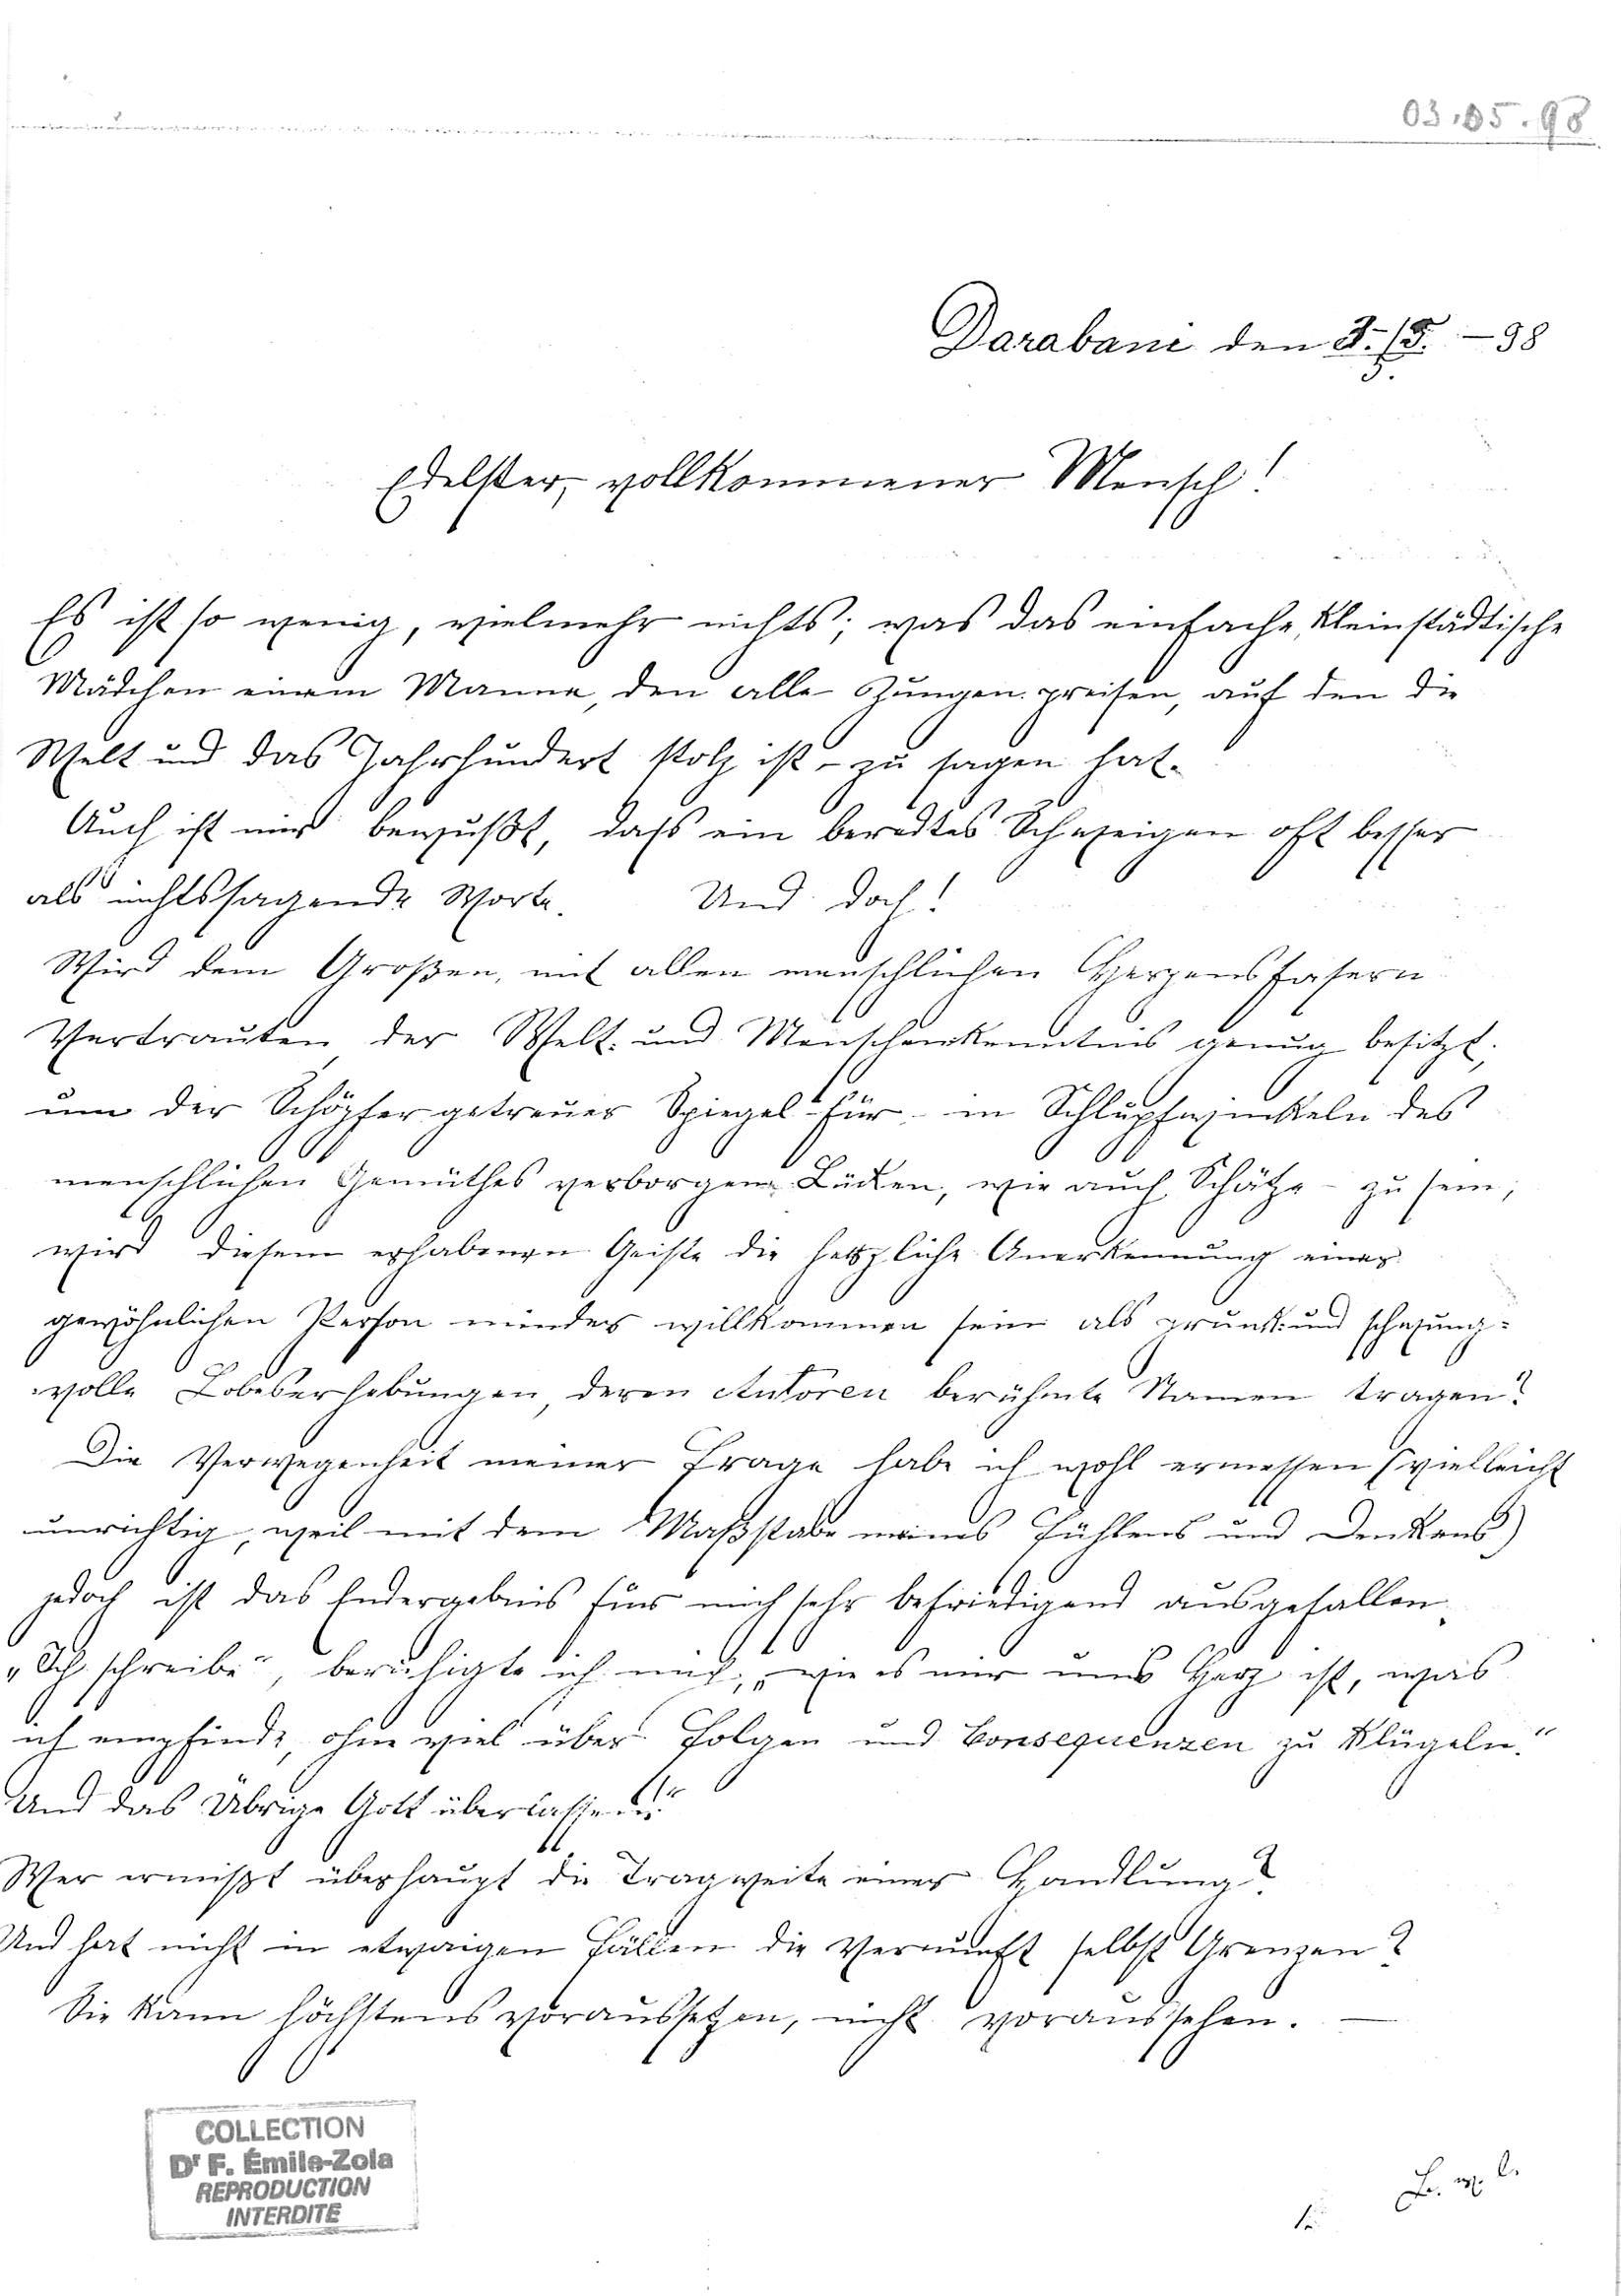 03.05.98
Darabani den 3./5. - 98
5.
Edelster, vollkommener Mensch!
Es ist so wenig, vielmehr nichts; was das einfache, kleinstädtische
Mädchen einem Manne, den alle Zungen preisen, auf den die
Welt und das Jahrhundert stolz ist - zu sagen hat.
Auch ist mir bewußt, dass ein beredtes Schweigen oft besser
als nichtssagende Worte. Und doch!
Wird dem Großen, mit allen menschlichen Herzensfasern
Vertrauten, der Welt- und Menschenkenntnis genug besitzt,
um der Schöpfer getreuer Spiegel für in Schlupfwinkeln des
menschlichen Gemüthes verborgene Lücken, wie auch Schätze - zu sein,
wird diesem erhabenen Geiste die herzliche Anerkennung einer
gewöhnlichen Person minder willkommen sein als prunk- und schwung-
volle Lobeserhebungen, deren Autoren berühmte Namen tragen?
Die Verwegenheit meiner Frage habe ich wohl ermessen (vielleicht
unrichtig, weil mit dem Maßstabe meines Fühlens und Denkens)
jedoch ist das Endergebnis für mich sehr befriedigend ausgefallen.
„Ich schreibe", beruhigte ich mich, „wie es mir ums Herz ist, was
ich empfinde, ohne viel über Folgen und Consequenzen zu klügeln."
Und das Übrige Gott überlassend"
Wer ermißt überhaupt die Tragweite einer Handlung?
Und hat nicht in etwaigen Fällen die Vernunft selbst Grenzen?
Sie kann höchstens voraussetzen, nicht voraussehen. —
COLLECTION
Dr F. Émile-Zola
REPRODUCTION
INTERDITE